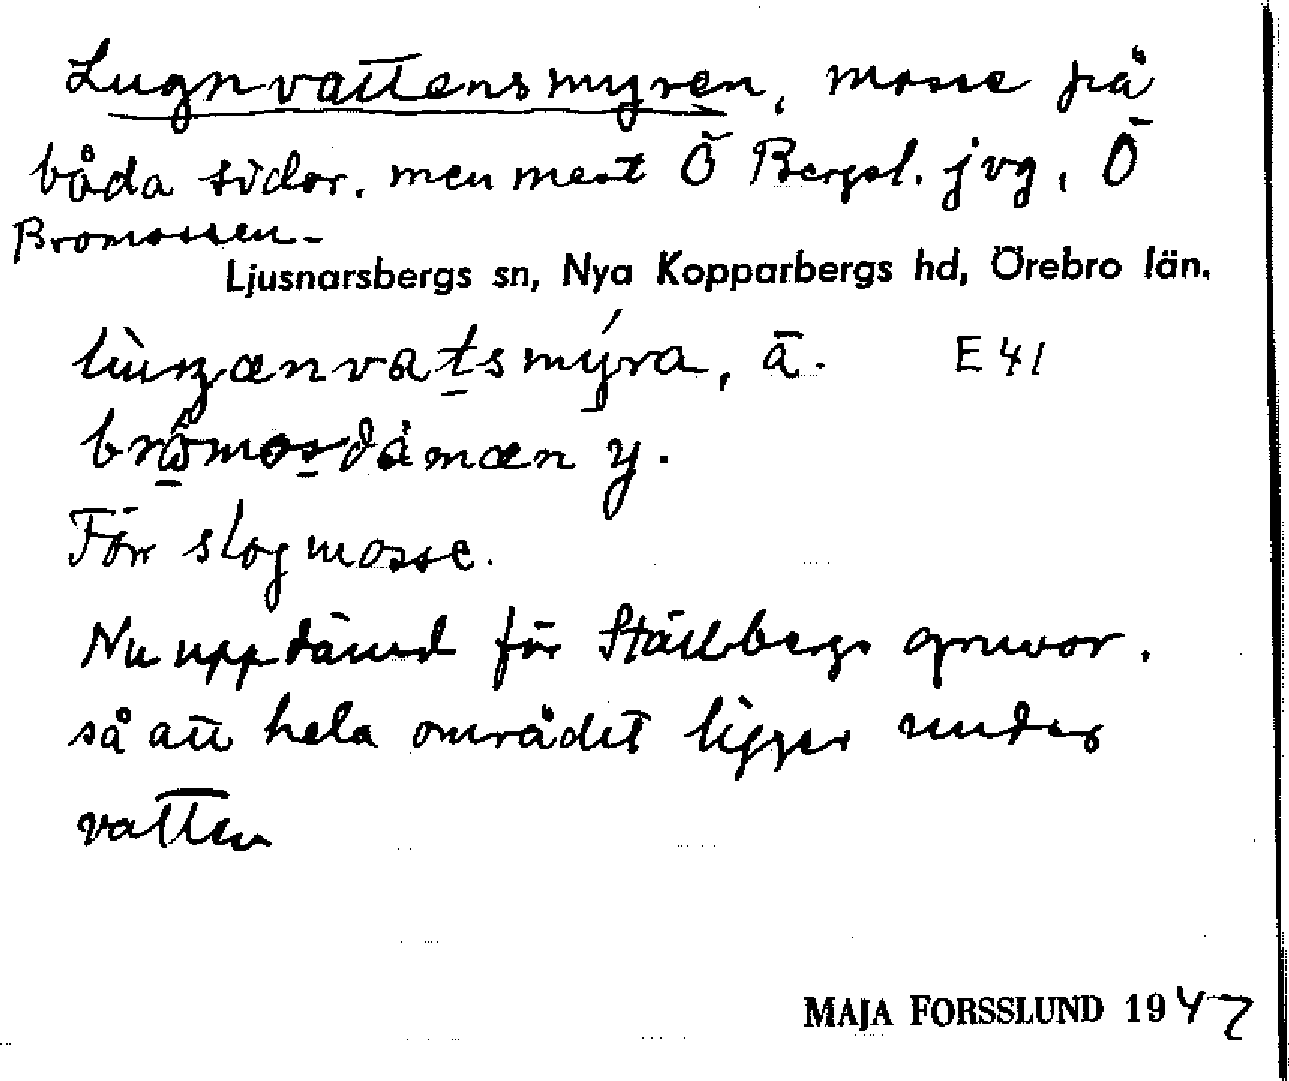 Lugnvattensmyren, mosse på
båda sidor, men mest Ö Bergsl. jvg, Ö
Bromossen.
Ljusnarsbergs sn, Nya Kopparbergs hd, Örebro län.
ā. E 41
y.
Förr slogmosse.
Nu uppdämd för Ställbergs gruvor.
så att hela området ligger under
vatten
MAJA FORSSLUND 1947